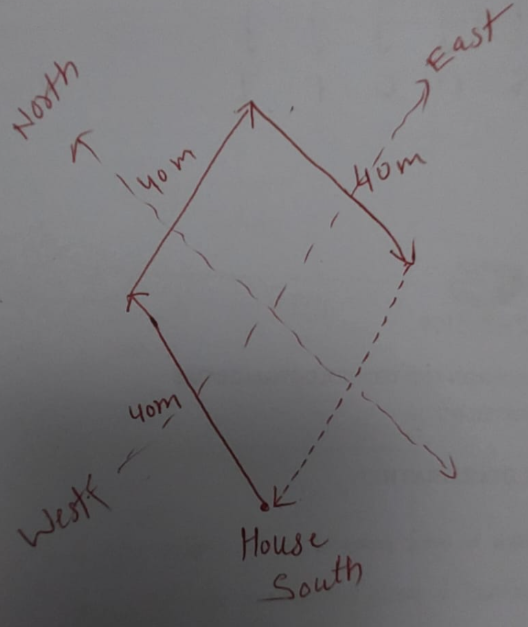 North
East
40m
40m
40m
West
House
South